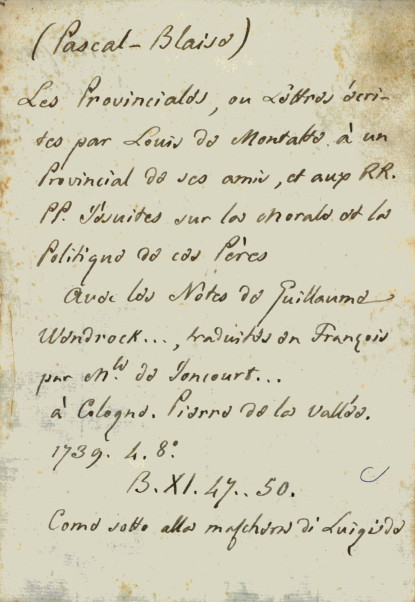 (Pascal-Blaise)
Les Provinciales, ou Lettres écri-
tes par Louis de Montalte à un
Provincial de ses amis, et aux RR.
PP. Jésuites sur la Morale et la
Politique de ces Pères
Avec les Notes de Guillaume
Wendrock..., traduites en François
par M.lle de Joncourt...
à Cologne. Pierre de la Vallée.
1739. 4. 8.º
B. XI. 47..50.
Come sotto alla maschera di Luigi de